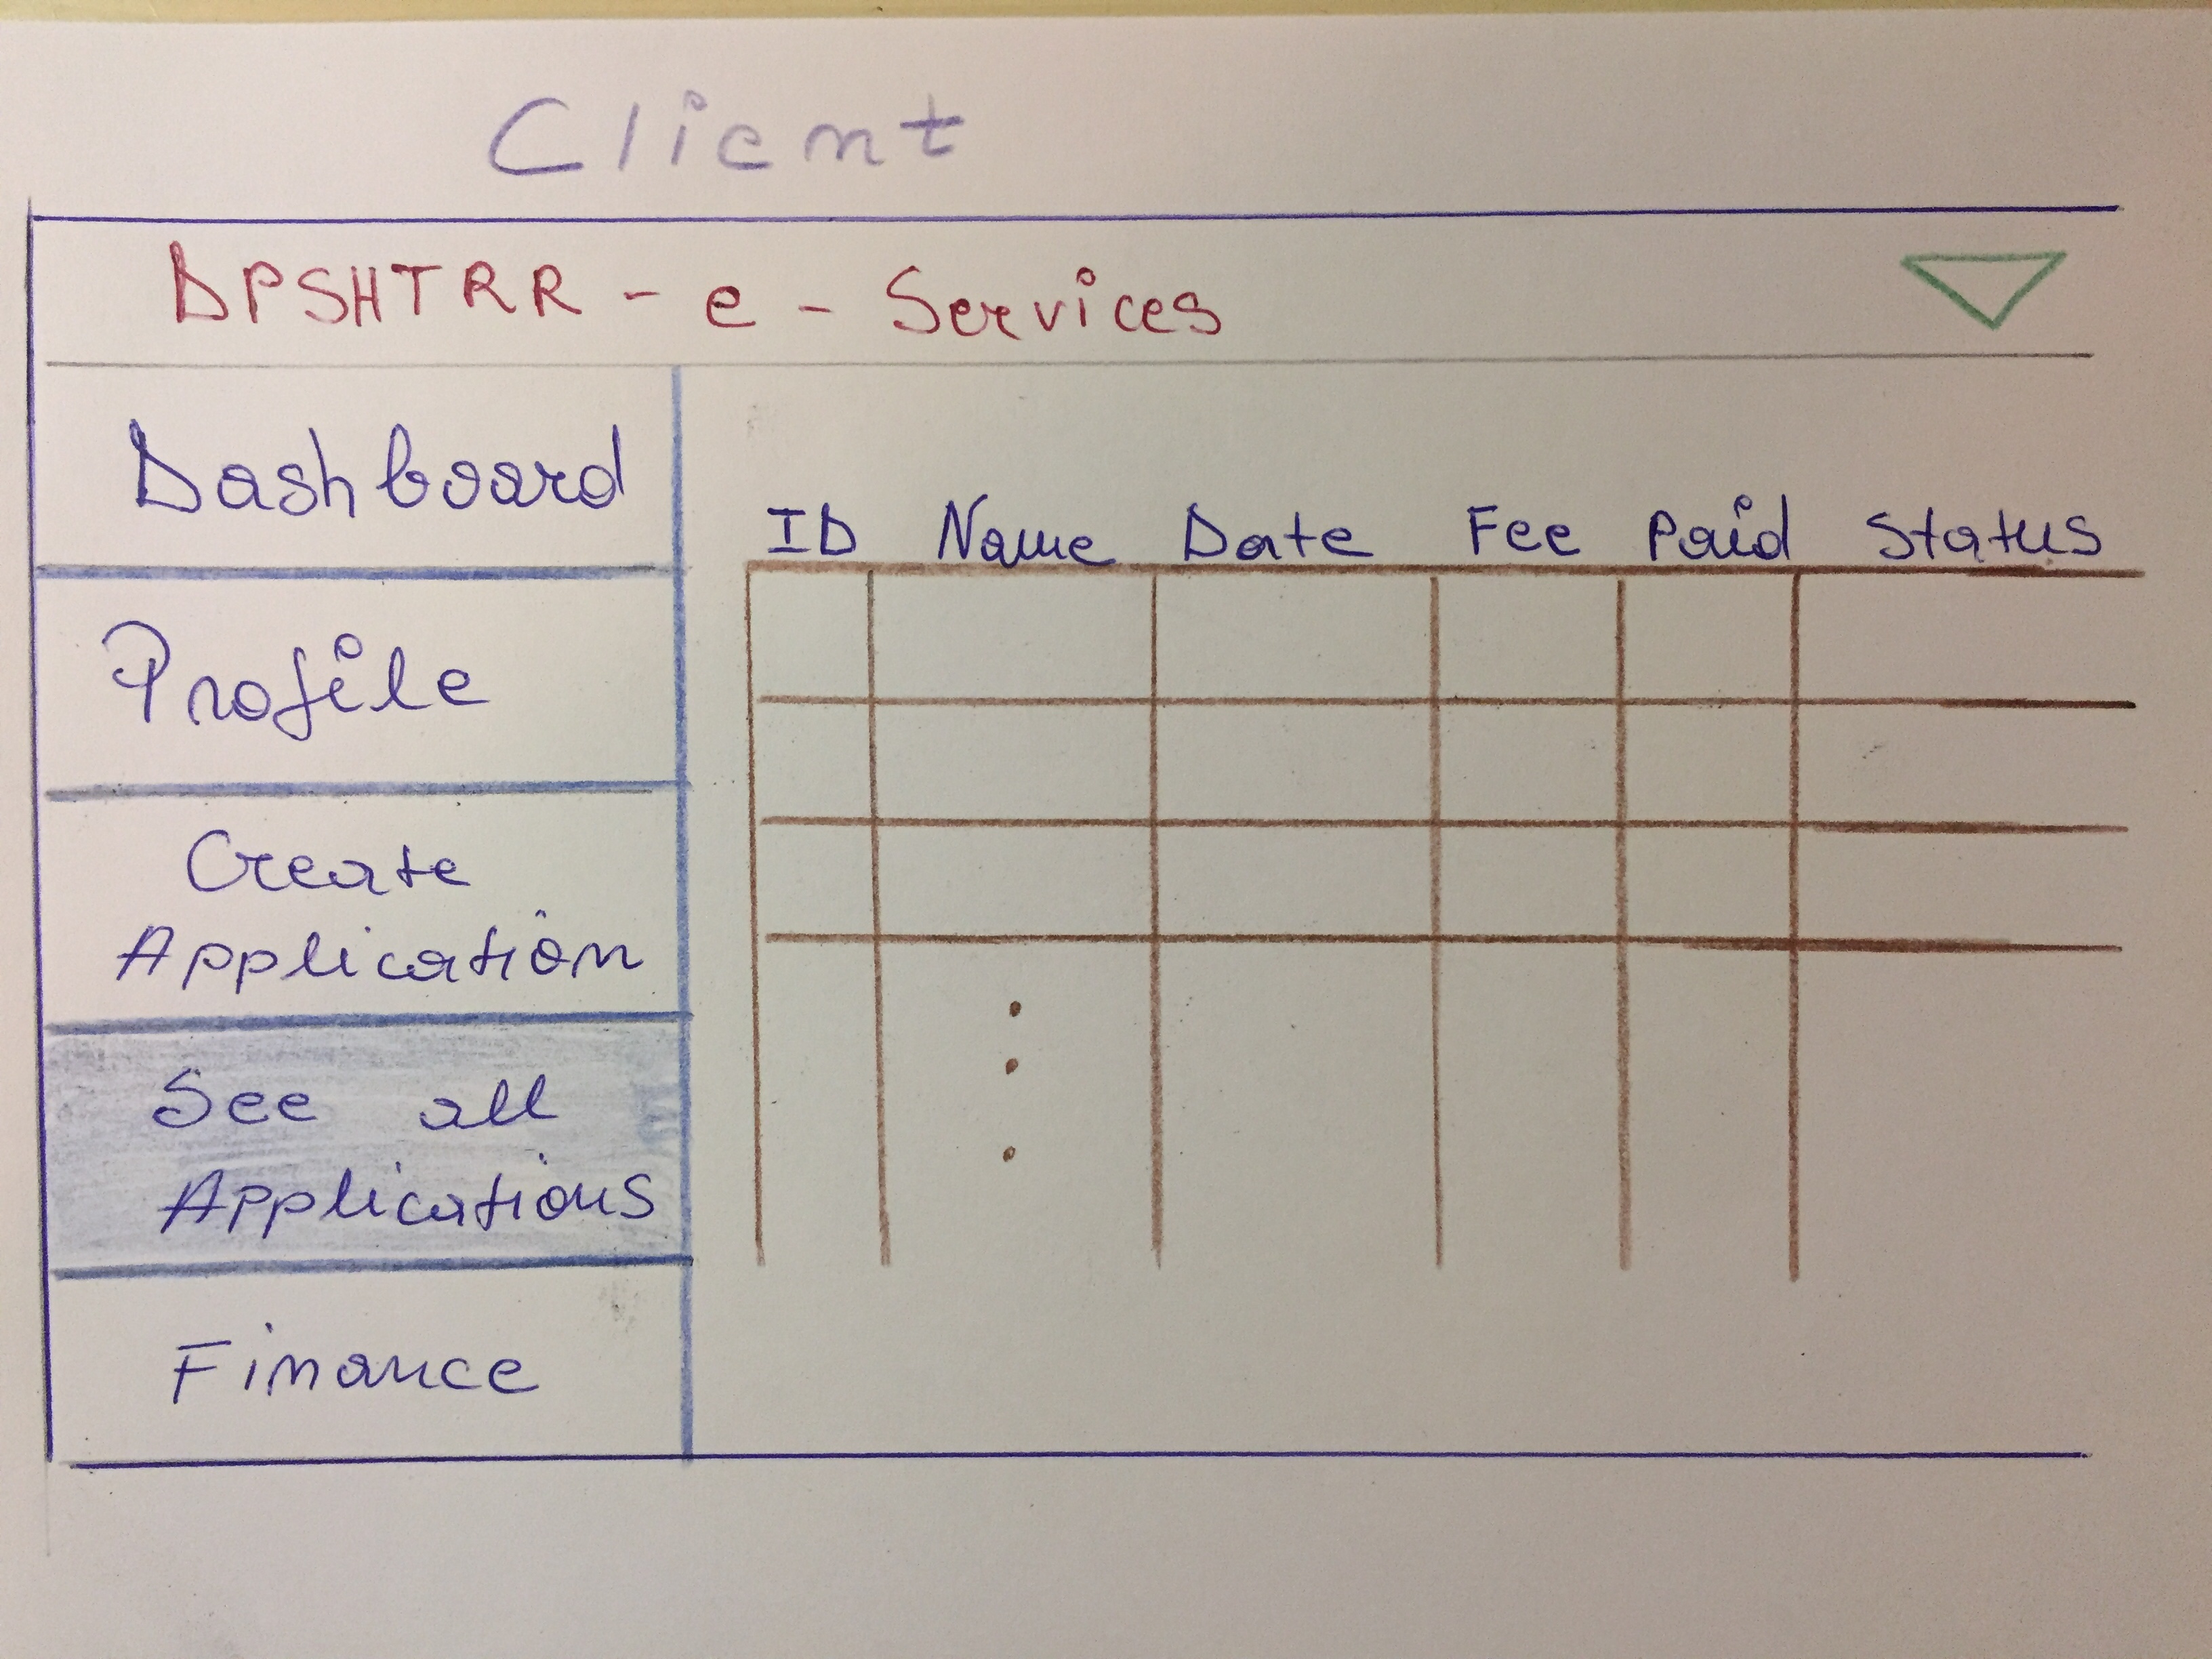 Client
DPSHTRR - e - Services
Dashboard
Profile
Create
Application
See all
Applications
Finance
ID Name Date Fee Paid Status